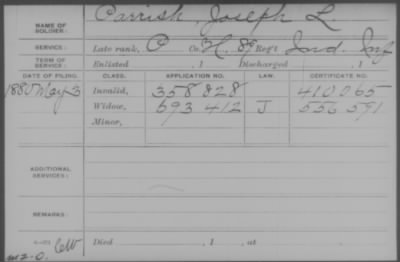 NAME OF SOLDIER: Parrish, Joseph L.
SERVICE: Late rank, P Co. H, 89 Reg't Ind. Inf
TERM OF SERVICE: Enlisted , 1 Discharged , 1
DATE OF FILING. CLASS. APPLICATION NO. LAW. CERTIFICATE NO.
1880 May 3 Invalid, 358828 410065
Widow, 693412 J 556591
Minor,
ADDITIONAL SERVICES:
REMARKS:
Died , 1 , at